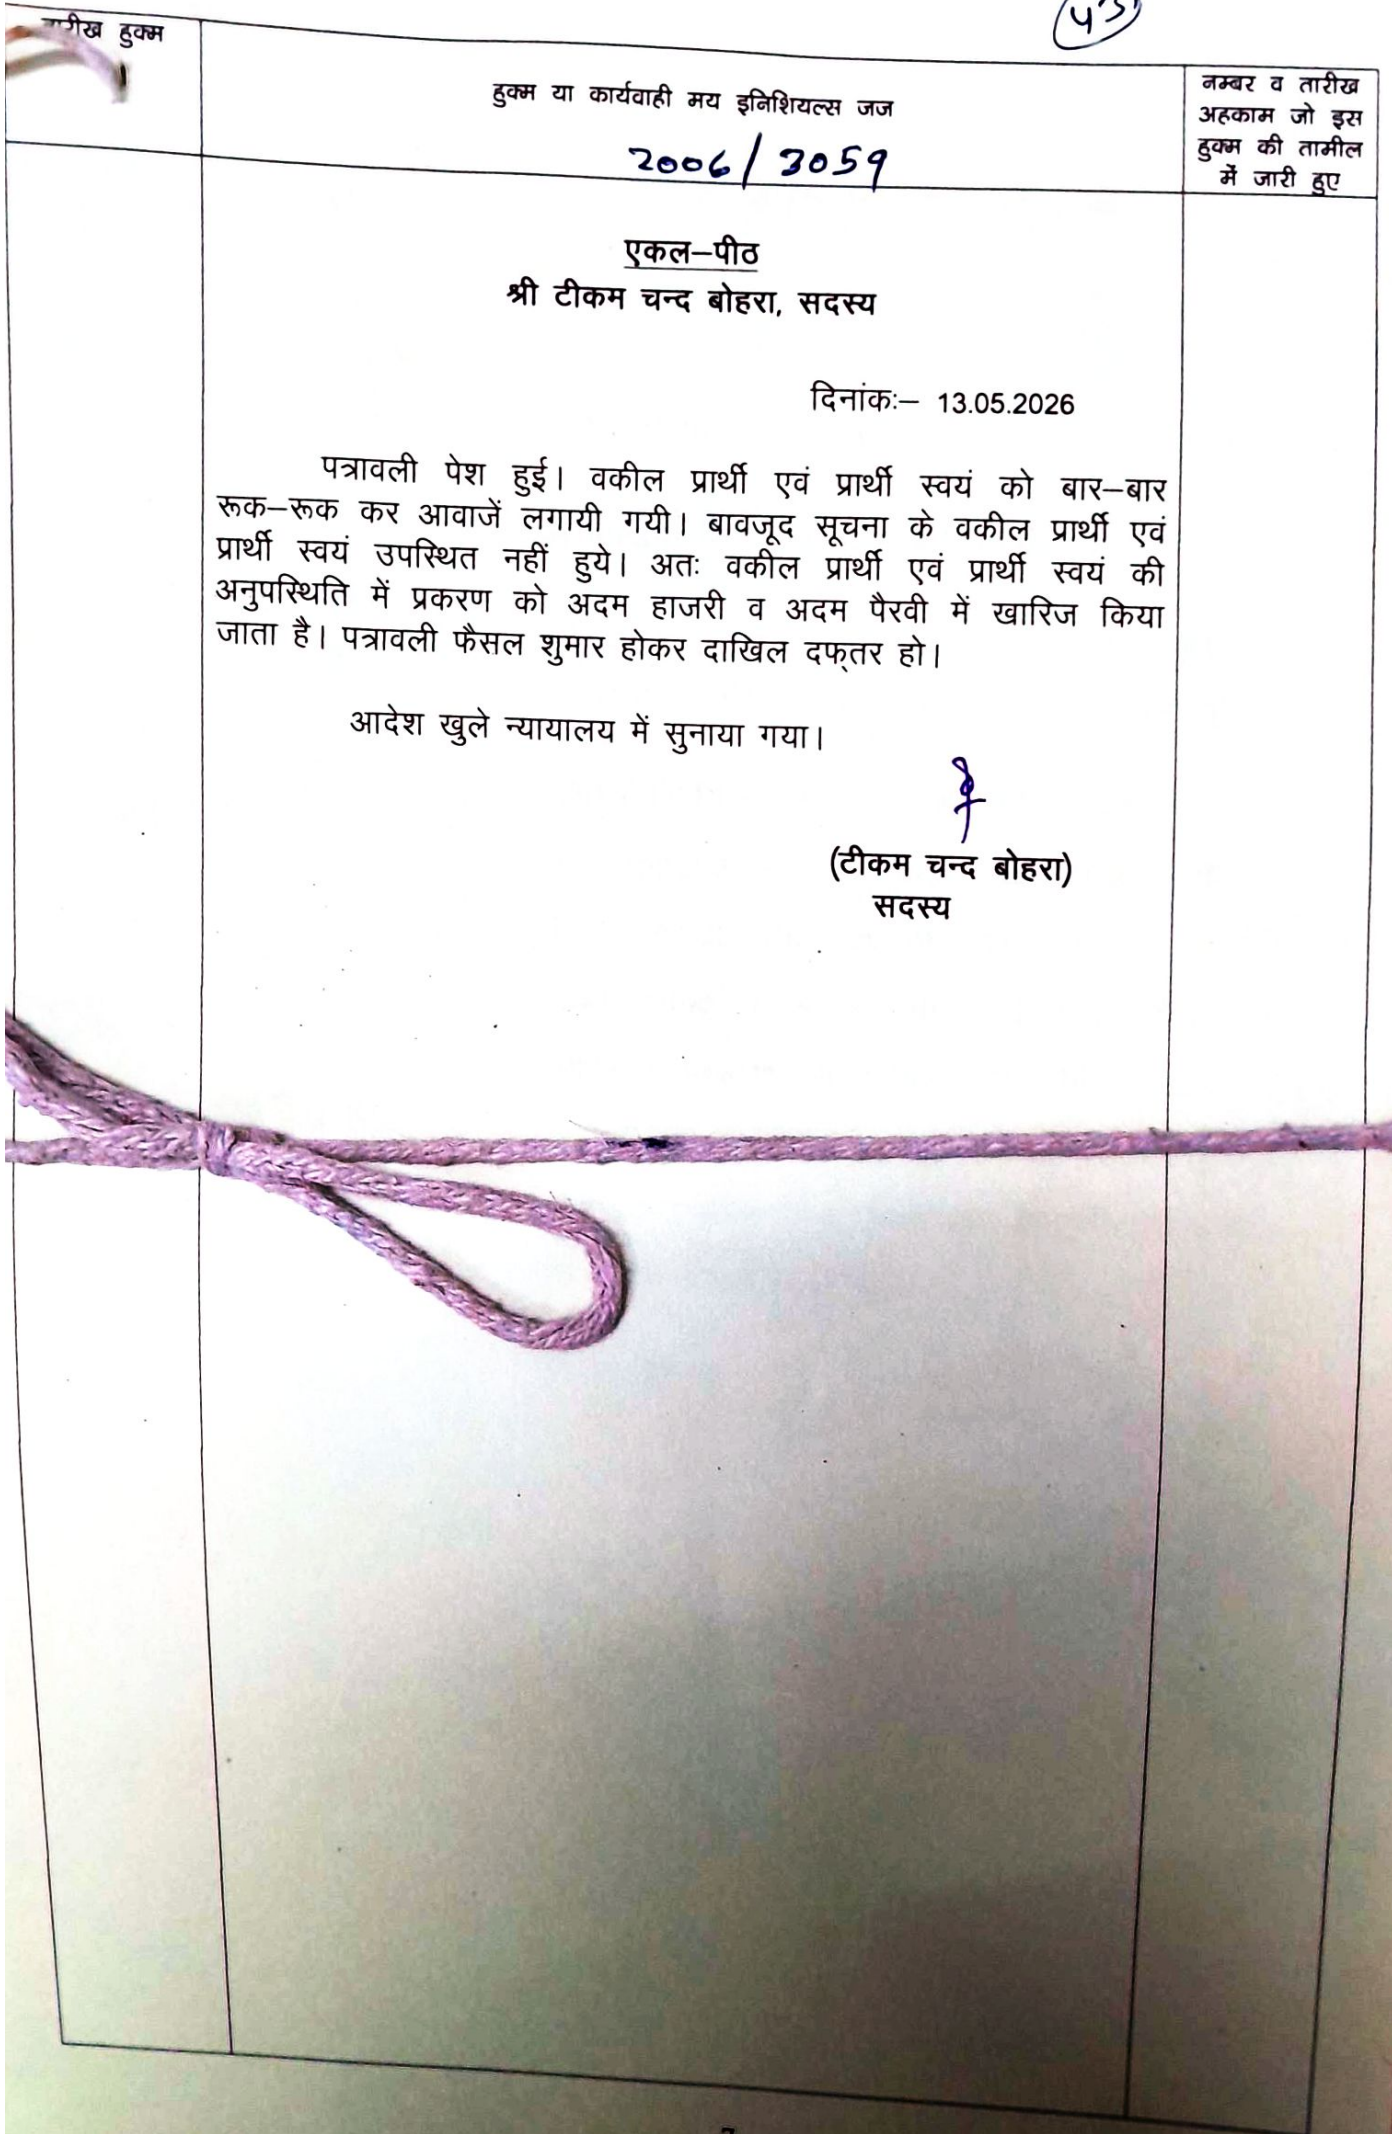 तारीख हुक्म
हुक्म या कार्यवाही मय इनिशियल्स जज
2006/3059
नम्बर व तारीख
अहकाम जो इस
हुक्म की तामील
में जारी हुए
एकल–पीठ
श्री टीकम चन्द बोहरा, सदस्य
दिनांकः– 13.05.2026
पत्रावली पेश हुई। वकील प्रार्थी एवं प्रार्थी स्वयं को बार–बार
रूक–रूक कर आवाजें लगायी गयी। बावजूद सूचना के वकील प्रार्थी एवं
प्रार्थी स्वयं उपस्थित नहीं हुये। अतः वकील प्रार्थी एवं प्रार्थी स्वयं की
अनुपस्थिति में प्रकरण को अदम हाजरी व अदम पैरवी में खारिज किया
जाता है। पत्रावली फैसल शुमार होकर दाखिल दफ्तर हो।
आदेश खुले न्यायालय में सुनाया गया।
(टीकम चन्द बोहरा)
सदस्य